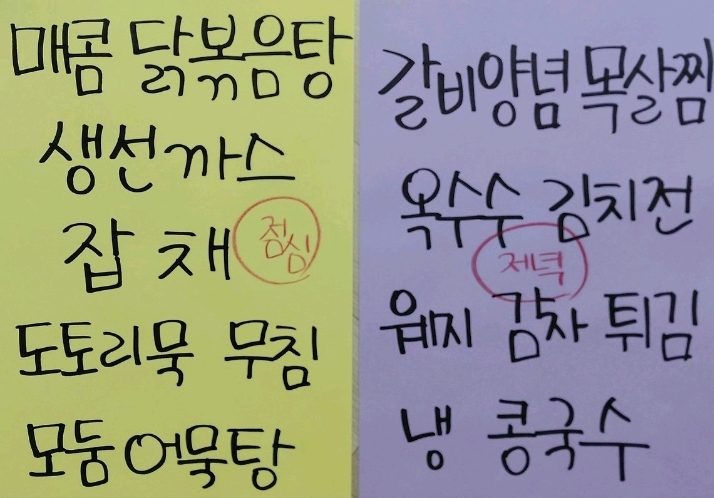 매콤 닭볶음탕
생선까스
잡채
점심
도토리묵 무침
모둠어묵탕
갈비양념 목살찜
옥수수 김치전
제녁
웨지 감자 튀김
냉 콩국수